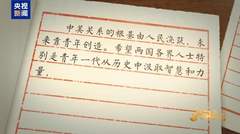 央视新闻
中美关系的根基由人民浇筑,未
来靠青年创造。希望两国各界人士特
别是青年一代从历史中汲取智慧和力
量,